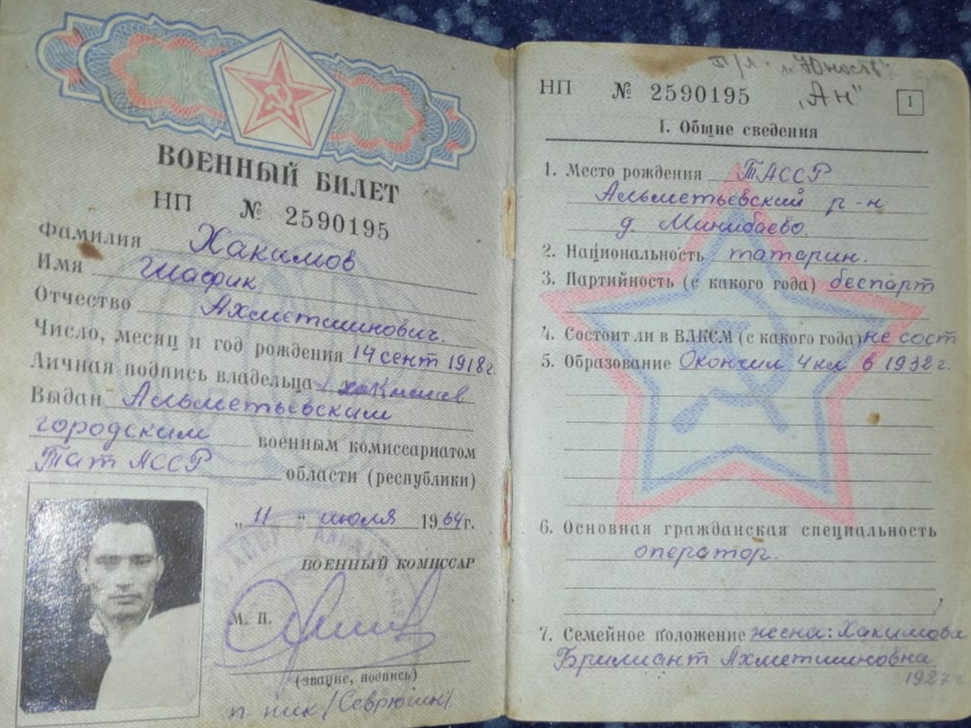 ВОЕННЫЙ БИЛЕТ
НП № 2590195
Фамилия Хакимов
Имя Шафик
Отчество Ахметшинович.
Число, месяц и год рождения 14 сент 1918г.
Личная подпись владельца
Выдан Альметьевским
городским военным комиссариатом
Тат АССР области (республики)
„11“ июля 1964г.
ВОЕННЫЙ КОМИССАР
М. П.
(звание, подпись)
п-ник (Севрюгин)
"Юность"
НП № 2590195 „Ан“ 1
I. Общие сведения
1. Место рождения ТАССР
Альметьевский р-н
д. Минибаево.
2. Национальность татарин.
3. Партийность (с какого года) беспарт
4. Состоит ли в ВЛКСМ (с какого года) не сост
5. Образование Окончил 4 кл в 1932г.
6. Основная гражданская специальность
оператор.
7. Семейное положение жена: Хакимова
Брилиант Ахметшиновна
1927г